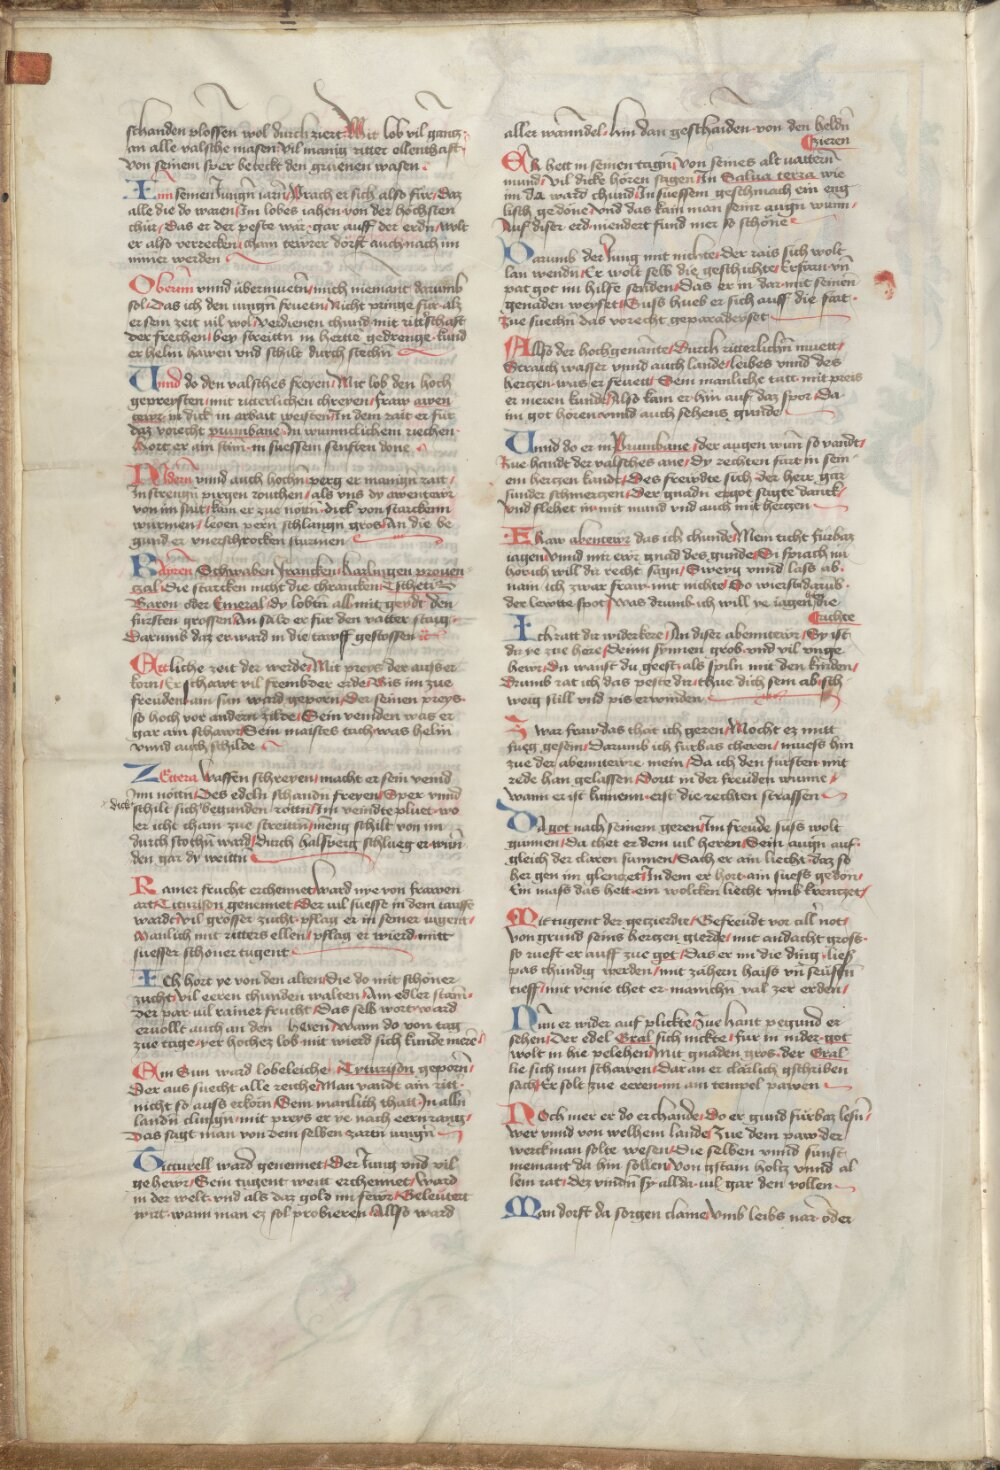 schanden plossen wol durch ziert / Mit lob vil gantz
an alle valsche masen / vil manig ritter ellenthafft
von seinem sper bedeckt den gruenen wasen
Inn seinen Jungn iarn / Prach er sich also für / Daz
alle die do waren / Im lobes iahen von der höchsten
chür / Das er der peste wär gar auff der erdn / wolt
er also verrecken / chain tewrer dörfft auch nach im
nimer werden
Oberim vnnd übermuetn / mich niemant darumb
sol / Das ich den iungn freuein / Nicht pringe für alz
er sein zeit vil wol / verdienen chund mit rittschafft
der frechen / bey streittn in hertte gedrenge / kund
er helm hawen vnd schilt durch stechn
Vnnd do den valsches freyen / Mit lob den hoch
gepreysten / mit ritterlichen chreyen / fraw awen
tewr in dick in arbait weisten / In dem rait er für
daz vorecht prumbane / In wunniclichem riechen
Hort er ain stim in suessem senften done
Aldern vnnd auch hochn perg er manign rait /
In strengn pirgen rouchen / als vns dy awentewr
von im sait / kam er zue nöttn dick von starckenn
würmen / leoen pern schlangn gros / An die be
gund er vnerschrocken sturmen
Bayren Schwaben Francken karlingen prouen
zal / Die starcken nicht die chrancken Tscheti
Baron oder Emeral / dy lobtn all mit geydt den
fürsten grossen / An salde er für den vatter staig
Darumb daz er ward in die tawff gestossen
Ettliche zeit der werde / Mit preys der ausser
korn / Er schawt vil frembder erde / Bis im zue
freuden ain sun ward geporn / Der seinen preys
so hoch vor andern zilde / Sein veinden was er
gar ain schawr / Sein maistes tach was helm
vnnd auch schilde
Zettera Waffen schreyen / macht er sein veind
Inn nöttn / Des edeln schandn freyen / Sper vnnd
dick
schilt sich begunden röttn / Im veindte pluet wo
er icht cham zue streittn / meng schilt von im
durch stochn ward / Durch halsperg schlueg er wun
den gar dy weittn
Rainer frucht erchennet / ward nye von frawen
art / Titurison genennet / Der vil suesse in dem tauffe
wardt / vil grosser zucht pflag er in seiner iugent /
Manlich mit ritters ellen / pflag er wierd mitt
suesser schoner tugent
Ich hort ye von den alten / Die do mit schöner
zucht / vil eeren chunden walten / Am edler stam
Der par vil rainer frucht / Das selb wort ward
ervollt auch an den heren / wann do von tag
zue tage / ver hochez lob mit wierd sich kunde mere
Ein Sun ward lobeleiche / Tyturison geporn /
Der aus suecht alle reiche / Man vandt ain ritt
nicht so auss erkorn / Sein manlich thatt / In alln
landn clingn / mit preys er ye nach eern rang /
Das sagt man von dem selben zartn iungn
Titturell ward genennet / Der Jung vnd vil
gehewr / Sein tugent weitt erchennet / ward
in der welt vnd als daz gold im fewr / Geleutert
wirt wann man ez sol probieren / Allso ward
aller wanndel / hin dan geschaiden von den heldn
Czieren
Er hett in seinen tagn / Von seines alt vattern
mund / vil dicke horen sagen / In Salua terza wie
im da ward chund / In suessem geschmach ein eng
lisch gedöne / vnd das kain man seinr augn wunn /
Auf diser erd niendert fund mer so schöne
Darumb der Jung mit nichte / Der rais sich wolt
lan wendn / Er wolt selb die geschichte / Erfarn vnd
pat got im hilfe senden / Das er in dar mit seinen
genaden weyset / Suss hueb er sich auff die fart
Zue suechn das vorecht geparadeyset
Allso der hochgenante / Durch ritterlichn muett /
Streich wasser vnnd auch lande / leibes vnnd des
hertzen was er fruett / Sein manliche tatt mit preis
er meren kunde / Also kam er hin auf daz spor / Da
im got hörens vnnd auch sehens gunde
Vnnd do er in Prumbane / der augen wun so vandt /
Zue handt der valsches ane / Dy rechten fart in sein
em hertzen landt / Des frewdte sich der herr gar
sunder schmertzen / Der gnadn er got sagte danck /
Vnd flehet im mit mund vnd auch mit hertzen
Fraw abentewr das ich chunde / Nem nicht fürbaz
iagen / Vnnd mir ewr gnad des gunde / Si sprach nu
hör ich will dir recht sagn / Sweyg vnnd lass ab
nam ich zwar fraw mit nichte / So wierst darub
der lewtte spot / Was drumb ich will ye iagen die
Crichte
Ich ratt dir widerkere / An diser abentewr / Sy ist
dir ye zue here / Deinn synnen grob vnd vil vnge
hewr / Du wanst du geest als spiln mit den kinden /
Drumb rat ich das peste dir / thue dich sein ab / sch
weig still vnd pis erwinden
Zwar fraw das that ich geren / Mocht ez mitt
fueg gesein / Darumb ich fürbas cheren / muess hin
zue der abentewre mein / Da ich den fürsten mit
rede han gelassen / Dort in der freuden wunne /
wann er ist kumenn erst die rechten strassen
Da got nach seinem geren / Im freude suss wolt
gunnen / Da thet er dem vil heren / Sein augn auf
gleich der claren sunnen / Sach er ain liecht daz so
her gen im glenczet / Indem er hort ain suess gedön /
Ein mass das hett ein wolcken liecht vmb krentzet /
Mit tugent der getzierdte / Gefreudt vor all not /
Von grund seins hertzen gierde / mit andacht gross
so rueft er auff zue got / Das er im die ding lies
pas chundig werden / mit zähern haiss vnd seufftzn
tieff / mit venie thet er manichn val zer erden /
Nun er wider auf plickte / Zue hant pegund er
sehen / Der edel Gral sich nickte / für in nider got
wolt in hie pelehen / Mit gnaden gros der Gral
lie sich nun schawen / Dar an er clärlich gschriben
sach / Er solt zue eeren im ain tempel pawen
Noch mer er do erchande / Do er gund fürbaz lesn /
wer vnnd von welhem lande / Zue dem paw der
werckman solte wesen / Die selben vnnd sunst
niemant da hin sollen / Von gstain holtz vnnd al
lem rat / Dez vindn sy allda vil gar den vollen
Man dorft da sorgen claine / Vmb leibs nar oder